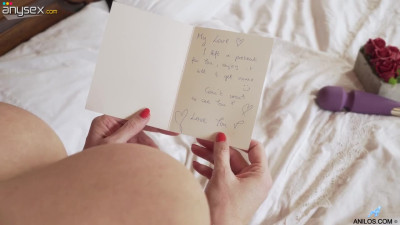 anysex.com
My Love
I left a present
for
till I get home
Can't wait
to see You
Love You
ANILOS.COM